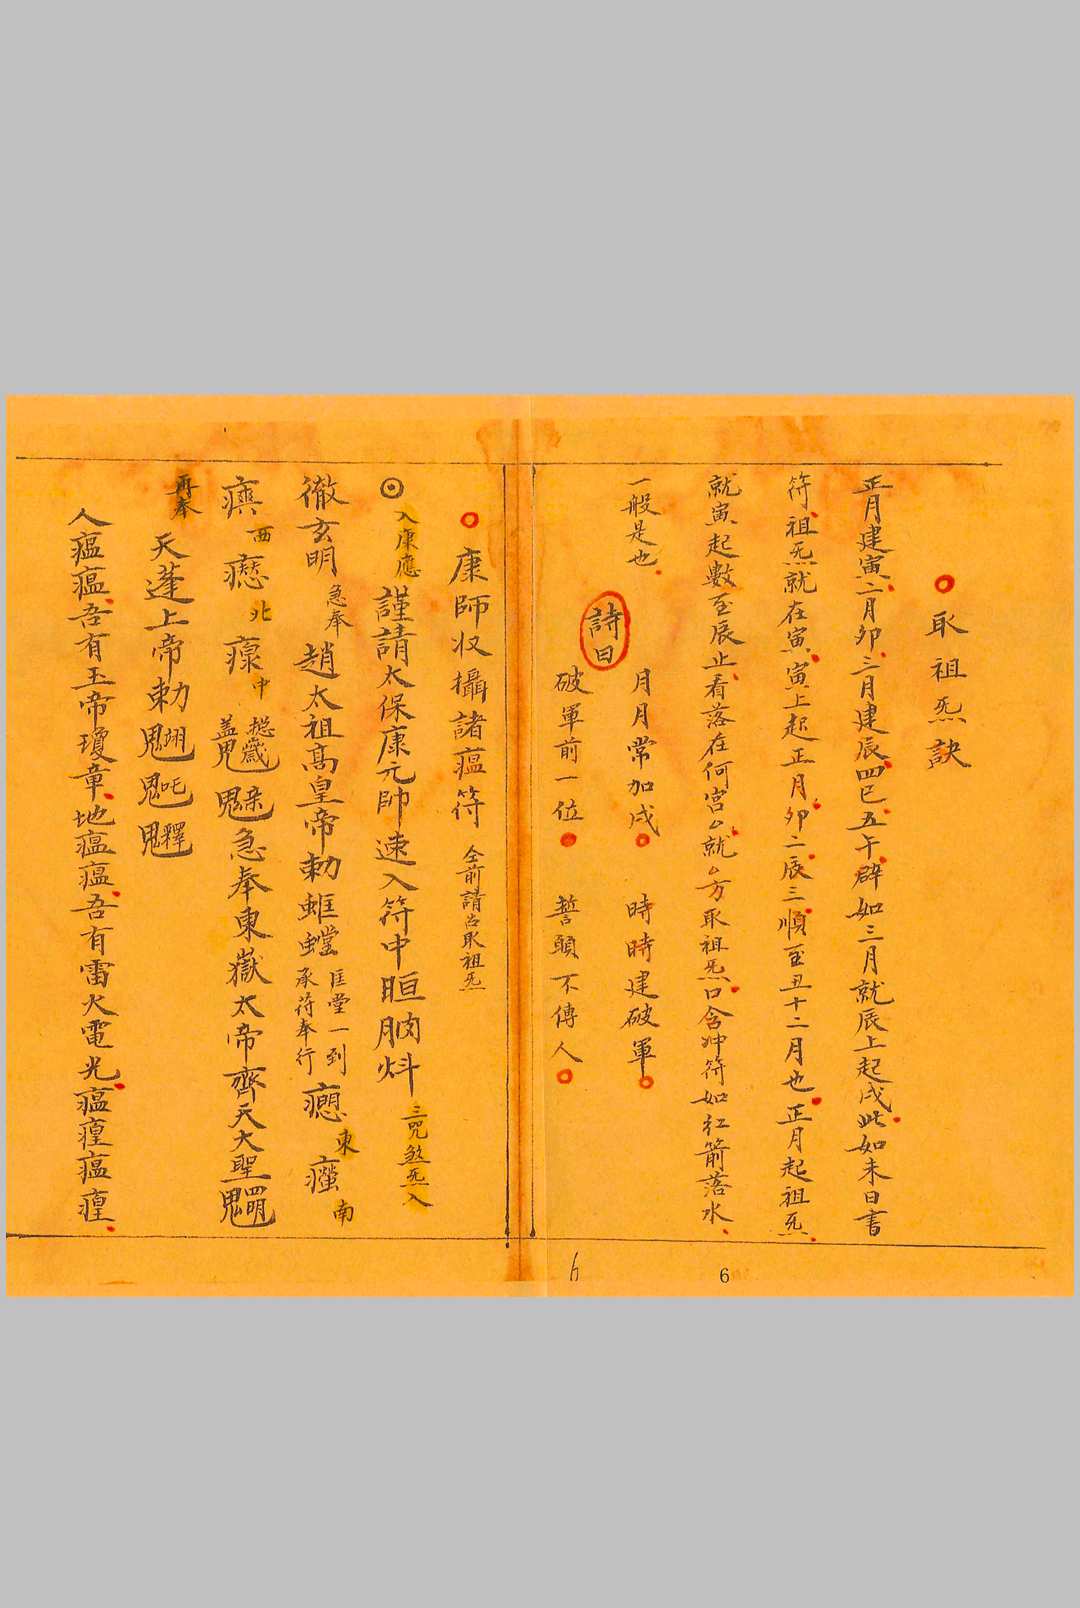 取祖炁訣
正月建寅二月卯三月建辰四巳五午辟如三月就辰上起戌此如未日書
符祖炁就在寅寅上起正月卯二辰三順至丑十二月也正月起祖炁
就寅起數至辰止看落在何宮就方取祖炁口含
符如紅箭落水
一般是也
詩曰
月月常加戌 時時建破軍
破軍前一位 誓願不傳人
康師收攝諸瘟符 仝前請召取祖炁
入康應 謹請太保康元帥速入符中 三咒煞炁入
徹玄明 急奉 趙太祖高皇帝勅 匡堂一到承符奉行 東 南
西 北 中 急奉東嶽太帝齊天大聖
再奉 天蓬上帝勅
人瘟瘟吾有玉帝瓊章地瘟瘟吾有雷火電光瘟瘟
6
6